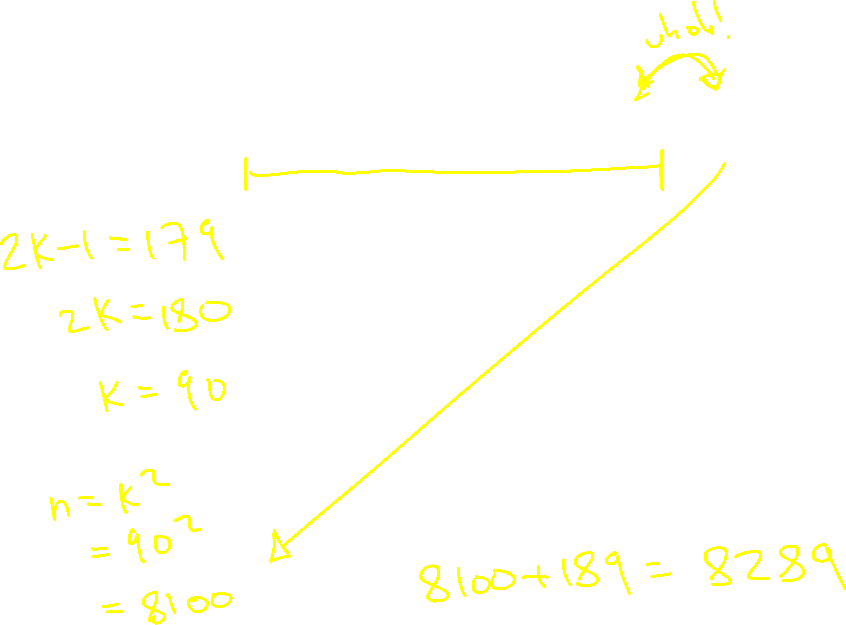 uhoh!
2k-1=179
2k=180
k=90
n=k²
=90²
=8100
8100+189=8289